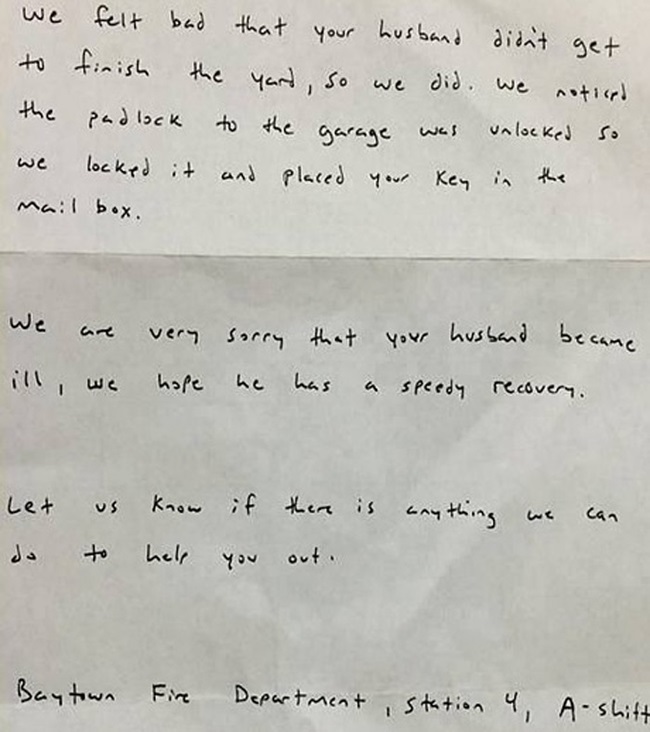 We felt bad that your husband didn't get
to finish the yard, so we did. We noticed
the padlock to the garage was unlocked so
we locked it and placed your key in the
mail box.
We are very sorry that your husband became
ill, we hope he has a speedy recovery.
Let us know if there is anything we can
do to help you out.
Baytown Fire Department, Station 4, A-shift